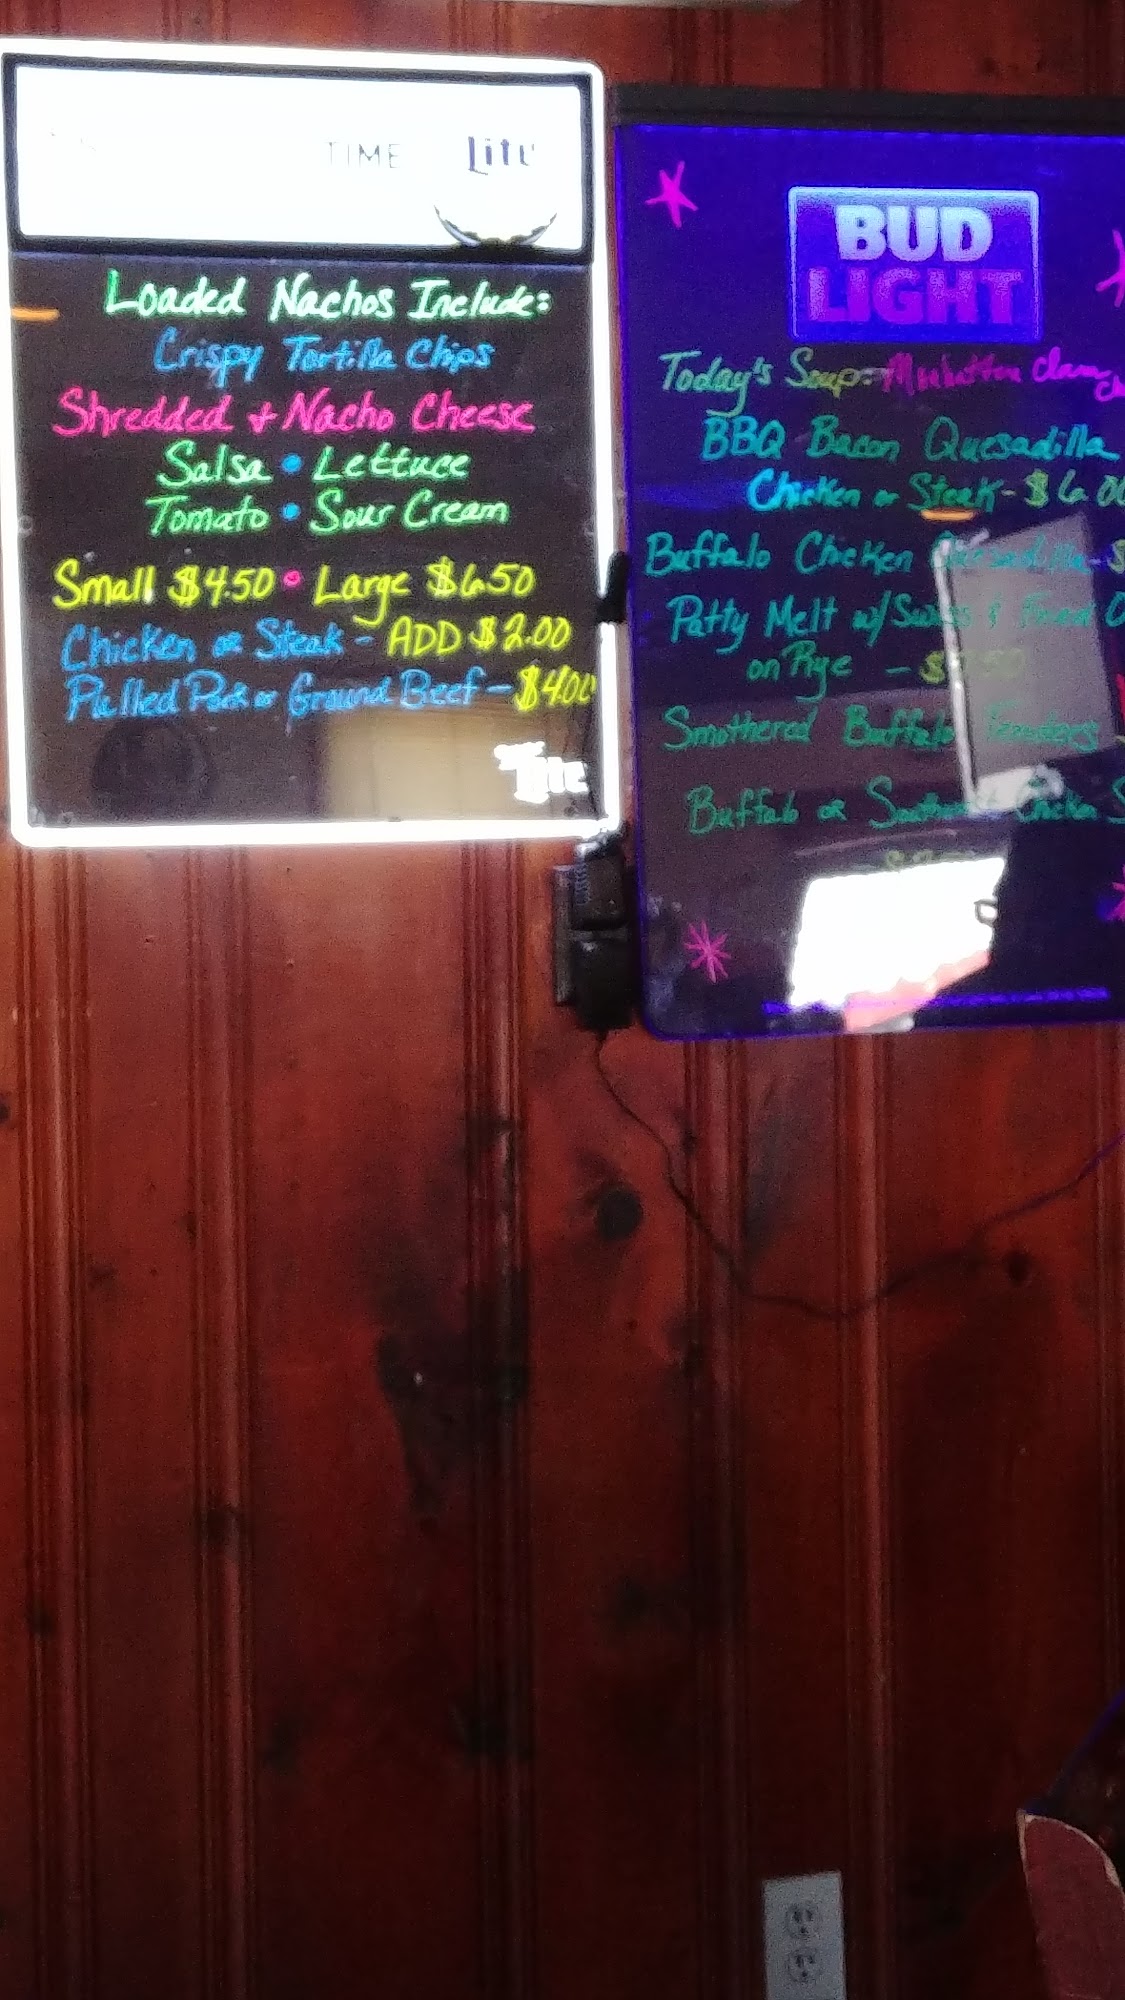 TIME Lite
Loaded Nachos Include:
Crispy Tortilla Chips
Shredded + Nacho Cheese
Salsa • Lettuce
Tomato • Sour Cream
Small $4.50 • Large $6.50
Chicken or Steak - ADD $2.00
Pulled Pork or Ground Beef - $4.00
Lite
BUD
LIGHT
Today's Soup - Manhattan Clam
BBQ Bacon Quesadilla
Chicken or Steak - $6.00
Buffalo Chicken Quesadilla - $
Patty Melt w/Swiss & Fried
on Rye - $
Smothered Buffalo Tenders
Buffalo or Southwest Chicken